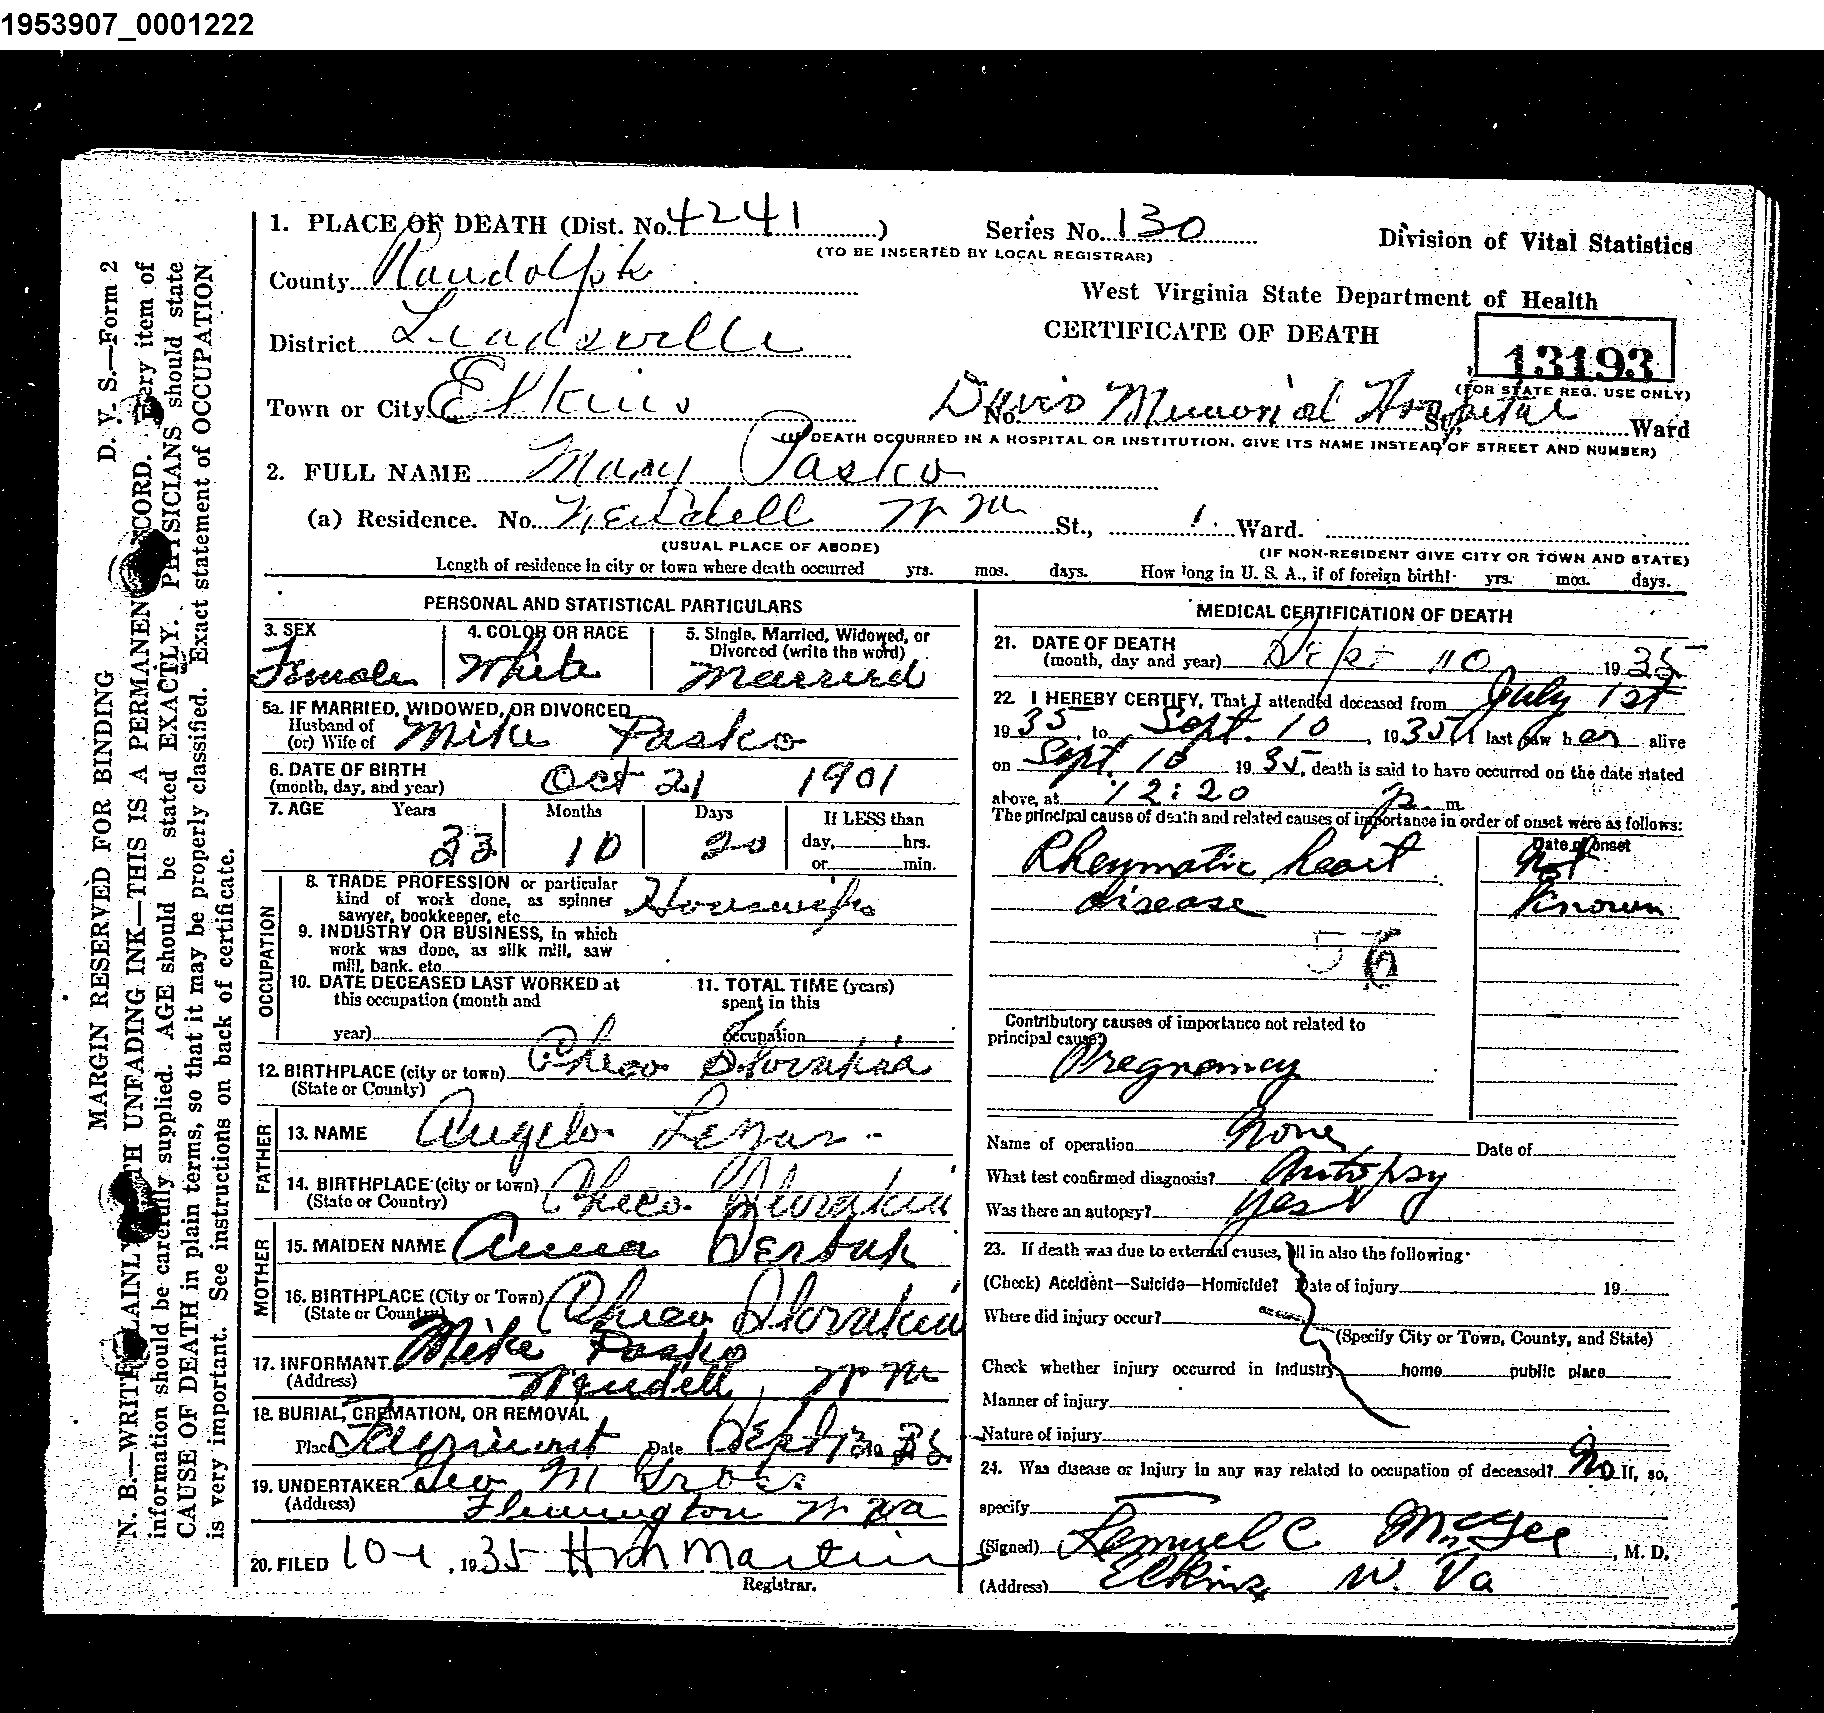 1953907_0001222
1. PLACE OF DEATH (Dist. No. 4241 ) Series No. 130 Division of Vital Statistics
(TO BE INSERTED BY LOCAL REGISTRAR)
County Randolph
West Virginia State Department of Health
District Leadsville CERTIFICATE OF DEATH
13193
(FOR STATE REG. USE ONLY)
Town or City Elkins No. Davis Memorial Hospital St., Ward
(IF DEATH OCCURRED IN A HOSPITAL OR INSTITUTION, GIVE ITS NAME INSTEAD OF STREET AND NUMBER)
2. FULL NAME Mary Pasko
(a) Residence. No. Wendell W Va St., Ward.
(USUAL PLACE OF ABODE) (IF NON-RESIDENT GIVE CITY OR TOWN AND STATE)
Length of residence in city or town where death occurred yrs. mos. days. How long in U. S. A., if of foreign birth? yrs. mos. days.
PERSONAL AND STATISTICAL PARTICULARS
3. SEX 4. COLOR OR RACE 5. Single, Married, Widowed, or
Divorced (write the word)
Female White Married
5a. IF MARRIED, WIDOWED, OR DIVORCED
Husband of
(or) Wife of Mike Pasko
6. DATE OF BIRTH
(month, day, and year) Oct 21 1901
7. AGE Years Months Days If LESS than
33 10 20 day, hrs.
or min.
OCCUPATION
8. TRADE PROFESSION or particular
kind of work done, as spinner
sawyer, bookkeeper, etc Housewife
9. INDUSTRY OR BUSINESS, in which
work was done, as silk mill, saw
mill, bank. etc
10. DATE DECEASED LAST WORKED at 11. TOTAL TIME (years)
this occupation (month and spent in this
year) occupation
12. BIRTHPLACE (city or town) Checo Slovakia
(State or County)
FATHER
13. NAME Angelo
14. BIRTHPLACE (city or town) Checo Slovakia
(State or Country)
MOTHER
15. MAIDEN NAME Anna
16. BIRTHPLACE (City or Town) Checo Slovakia
(State or Country)
17. INFORMANT Mike Pasko
(Address) Wendell, W Va
18. BURIAL, CREMATION, OR REMOVAL
Place Date Sept 13 19 35
19. UNDERTAKER Geo M
(Address) Flemington W Va
20. FILED 10-1, 1935 H M Martin
Registrar.
MEDICAL CERTIFICATION OF DEATH
21. DATE OF DEATH
(month, day and year) Sept 10 1935
22. I HEREBY CERTIFY, That I attended deceased from July 1st
1935 to Sept. 10, 1935 I last saw her alive
on Sept. 10 1935, death is said to have occurred on the date stated
above, at 12:20 p. m.
The principal cause of death and related causes of importance in order of onset were as follows:
Date of onset
Rheumatic heart Not
disease Known
56
Contributory causes of importance not related to
principal cause?
Pregnancy
Name of operation None Date of
What test confirmed diagnosis? Autopsy
Was there an autopsy? Yes
23. If death was due to external causes, fill in also the following:
(Check) Accident—Suicide—Homicide? Date of injury 19
Where did injury occur?
(Specify City or Town, County, and State)
Check whether injury occurred in industry home public place
Manner of injury
Nature of injury
24. Was disease or injury in any way related to occupation of deceased? No If, so,
specify
(Signed) Lemuel C McGee, M. D.
(Address) Elkins W. Va
D. V. S.—Form 2
MARGIN RESERVED FOR BINDING
N. B.—WRITE PLAINLY WITH UNFADING INK—THIS IS A PERMANENT RECORD. Every item of
information should be carefully supplied. AGE should be stated EXACTLY. PHYSICIANS should state
CAUSE OF DEATH in plain terms, so that it may be properly classified. Exact statement of OCCUPATION
is very important. See instructions on back of certificate.